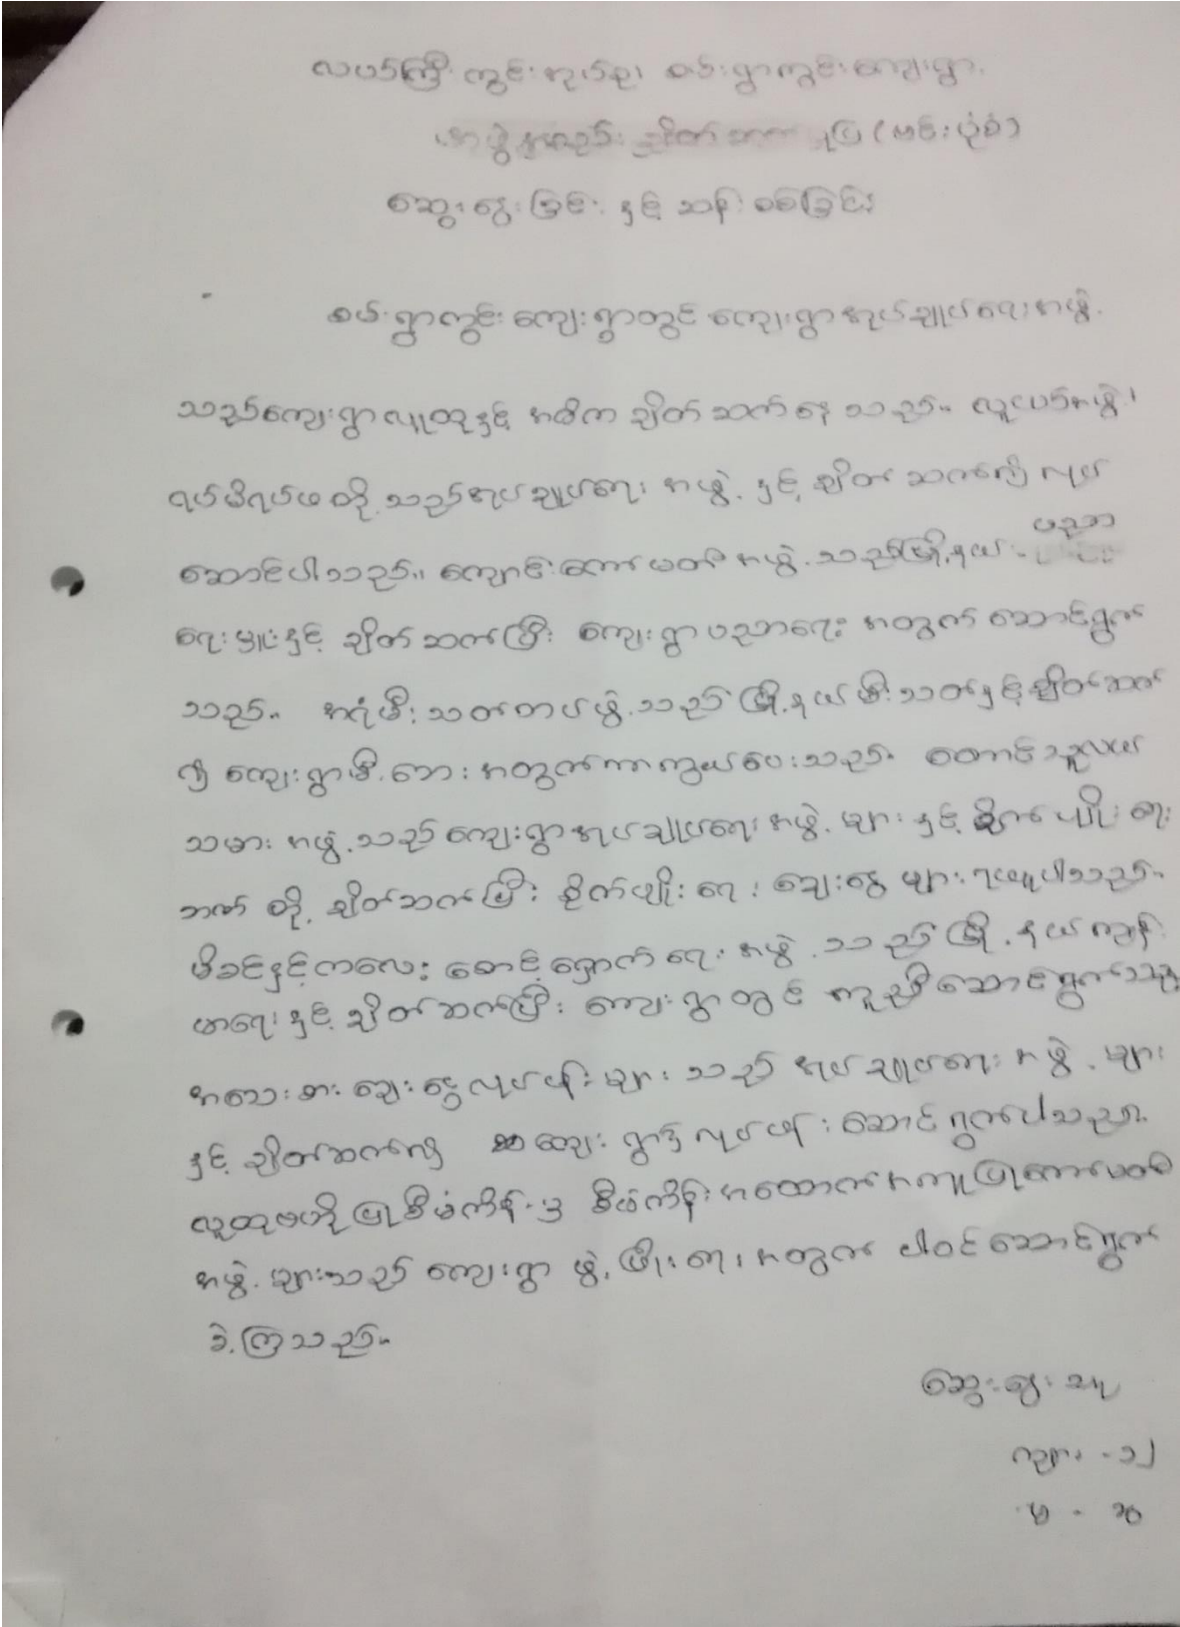 လပတ်ကြီးကွင်းအုပ်စု၊ စမ်းရွာကွင်းကျေးရွာ၊
အဖွဲ့အစည်းချိတ်ဆက် ပြ (ဗင်းပုံစံ)
ဆွေးနွေးခြင်းနှင့် ဆန်းစစ်ခြင်း
စမ်းရွာကွင်းကျေးရွာတွင် ကျေးရွာအုပ်ချုပ်ရေးအဖွဲ့
သည်ကျေးရွာလူထုနှင့် အဓိက ချိတ်ဆက်နေသည်။ လူငယ်အဖွဲ့၊
ရပ်မိရပ်ဖတို့သည်အုပ်ချုပ်ရေးအဖွဲ့နှင့် ချိတ်ဆက်၍ လုပ်
ဆောင်ပါသည်။ ကျောင်းကော်မတီအဖွဲ့သည်မြို့နယ် ပညာ
ရေးမှူးနှင့် ချိတ်ဆက်ပြီး ကျေးရွာပညာရေးအတွက် ဆောင်ရွက်
သည်။ အရံမီးသတ်တပ်ဖွဲ့သည် မြို့နယ်မီးသတ်နှင့်ချိတ်ဆက်
၍ ကျေးရွာမီးဘေးအတွက်ကာကွယ်ပေးသည်။ တောင်သူလယ်
သမားအဖွဲ့သည် ကျေးရွာအုပ်ချုပ်ရေးအဖွဲ့များနှင့် စိုက်ပျိုးရေး
ဘဏ်တို့ ချိတ်ဆက်ပြီး စိုက်ပျိုးရေးချေးငွေများရယူပါသည်။
မိခင်နှင့်ကလေးစောင့်ရှောက်ရေးအဖွဲ့သည် မြို့နယ်ကျန်း
မာရေးနှင့် ချိတ်ဆက်ပြီး ကျေးရွာတွင် ကူညီဆောင်ရွက်သည်
အသေးစားချေးငွေလုပ်ငန်းများသည် အုပ်ချုပ်ရေးအဖွဲ့များ
နှင့် ချိတ်ဆက်၍ ကျေးရွာ၌ လုပ်ငန်းဆောင်ရွက်ပါသည်။
လူထုဗဟိုပြုစီမံကိန်းမှ စီမံကိန်းအထောက်အကူပြုကော်မတီ
အဖွဲ့များသည် ကျေးရွာ ဖွံ့ဖြိုးရေးအတွက် ပါဝင်ဆောင်ရွက်
ခဲ့ကြသည်။
ဆွေးနွေးသူ
ကျား -၁၂
မ -